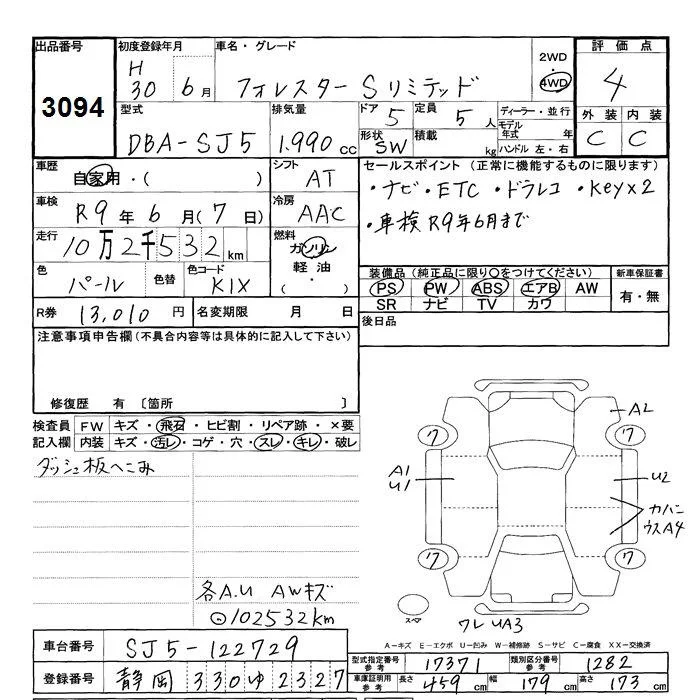 出品番号
3094
初度登録年月
H
30 6月
車名・グレード
フォレスター Sリミテッド
2WD
・
4WD
評価点
4
外装 内装
C C
型式
DBA-SJ5
排気量
1.990cc
ドア 5
定員 5人
形状 SW
積載 kg
ディーラー・並行
モデル
年式 年
ハンドル 左・右
車歴
自家用・( )
シフト
AT
セールスポイント (正常に機能するものに限ります)
・ナビ・ETC・ドラレコ・Key×2
・車検R9年6月まで
車検
R9年6月(7日)
冷房
AAC
走行
10万2千532km
燃料
ガソリン
軽油・
( )
色
パール
色替
色コード
K1X
装備品(純正品に限り○をつけてください)
PS PW ABS エアB AW
SR ナビ TV カワ
新車保証書
有・無
R券 13,010円
名変期限 月 日
後日品
注意事項申告欄(不具合内容等は具体的に記入して下さい)
修復歴 有 〔箇所 〕
検査員 FW キズ・飛石・ヒビ割・リペア跡・×要
記入欄 内装 キズ・汚レ・コゲ・穴・スレ・キレ・破レ
ダッシュ板へこみ
各A.U AWキズ
⊙102532km
A2
ワ ワ
A1
U1
U2
カバン
ウスA4
ワ ワ
スペア
ワレUA3
A-キズ E-エクボ U-凹み W-補修跡 S-サビ C-腐食 XX-交換済
車台番号 SJ5-122729
登録番号 静岡 330ゆ2327
型式指定番号
参考
17371
類別区分番号
参考
1282
車庫証明用
参考
長さ 459cm 幅 179cm 高さ 173cm